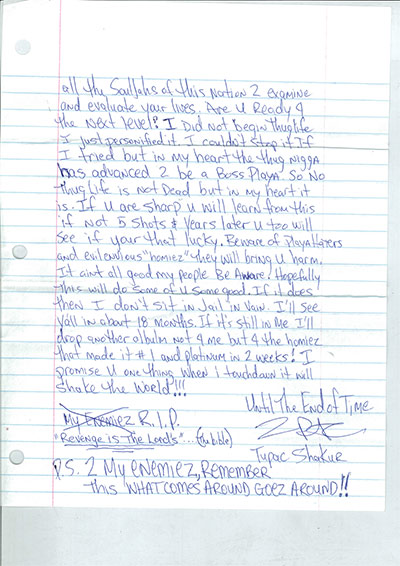 all thy Souljahs of this Nation 2 examine
and evaluate your lives. Are U Ready 4
the Next level? I Did Not begin thuglife
I just personified it. I couldn't stop it If
I tried but in my heart the thug Nigga
has advanced 2 be a Boss Playa. So No
Thug Life is Not Dead but in my heart it
is. If U are sharp U will learn from this
if Not 5 Shots & Years later U too will
see if your that lucky. Beware of PlayaHaters
and evil envious "homiez" they will bring U harm.
It aint all good my people Be Aware! Hopefully
this will do some of U some good. If it does
then I don't sit in Jail in Vain. I'll See
Yall in about 18 months. If it's still in Me I'll
drop another album Not 4 me but 4 the homiez
that made it #1 and platinum in 2 weeks! I
promise U one thing when I touchdown it will
Shake the World!!!
Until The End of Time
My Enemiez R.I.P.
"Revenge is The Lord's"... (the bible)
Tupac Shakur
P.S. 2 My Enemiez, Remember
this WHAT COMES AROUND GOEZ AROUND!!